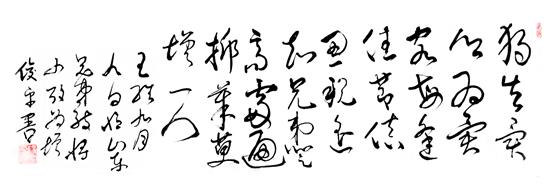 独在异
乡为异
客每逢
佳节倍
思亲遥
知兄弟登
高处遍
插茱萸
增一人
王维九月
九日忆山东
兄弟诗将
少改为增
俊平書